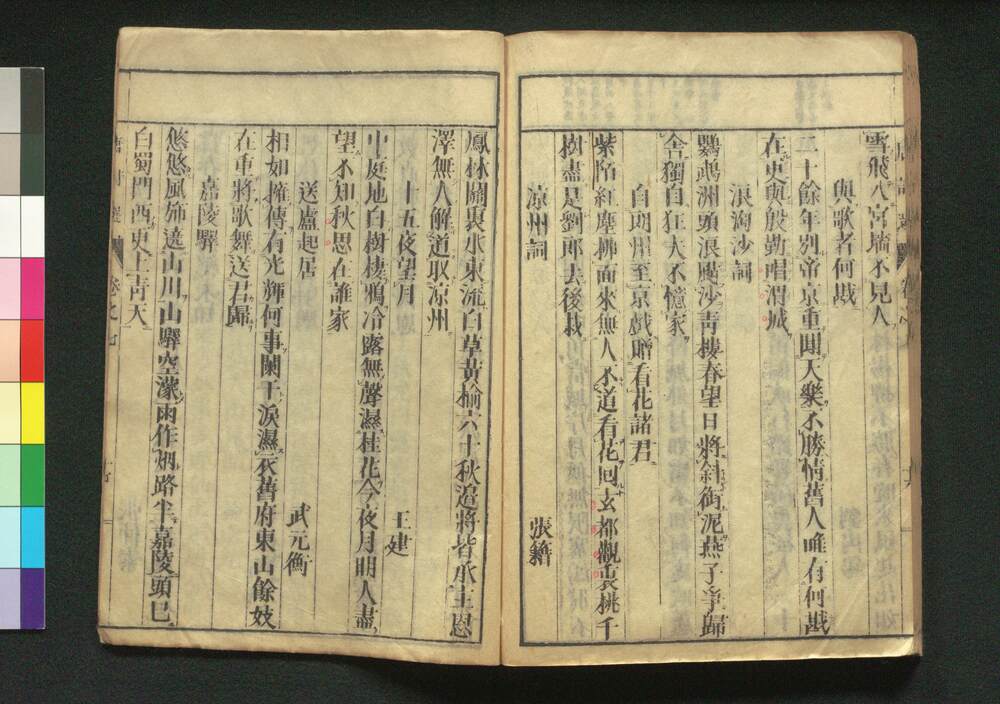 雪飛入宮墻不見人
與歌者何戡
二十餘年別帝京重聞天樂不勝情舊人唯有何戡
在更與殷勤唱渭城
浪淘沙詞
鸚鵡洲頭浪颭沙青樓春望日將斜銜泥燕子爭歸
舍獨自狂夫不憶家
自朗州至京戲贈看花諸君
紫陌紅塵拂面來無人不道看花囘玄都觀裏桃千
樹盡是劉郎去後栽
涼州詞 張籍
鳳林關裏水東流白草黃榆六十秋邉將皆承主恩
澤無人解道取凉州
十五夜望月 王建
中庭地白樹棲鴉冷露無聲濕桂花今夜月明人盡
望不知秋思在誰家
送盧起居 武元衡
相如擁傳有光輝何事闌干淚濕衣舊府東山餘妓
在重將歌舞送君歸
嘉陵驛
悠悠風斾遶山川山驛空濛雨作烟路半嘉陵頭已
白蜀門西更上青天
唐詩選 卷之七